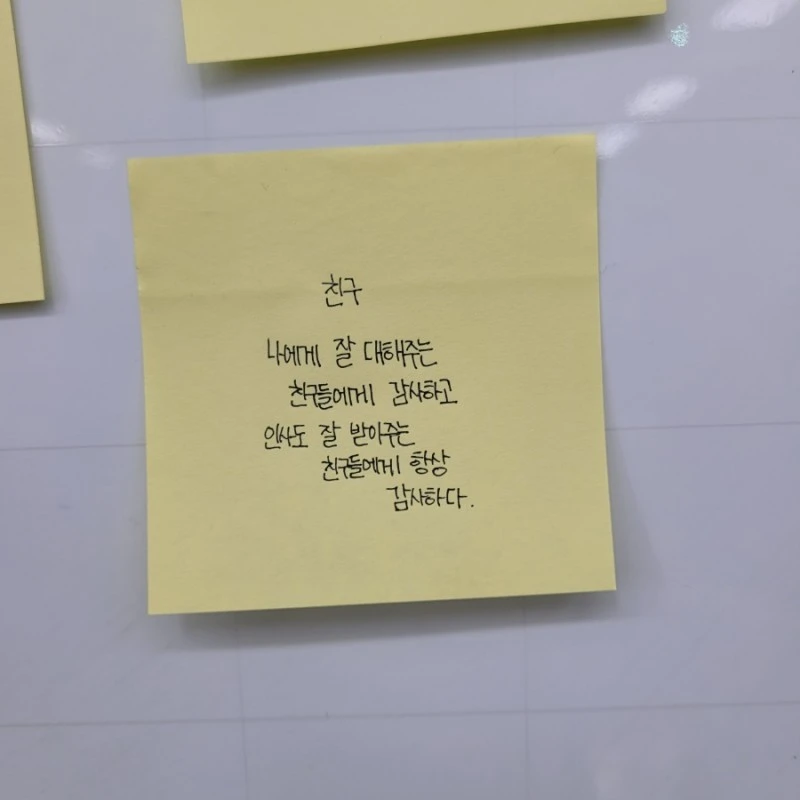 친구
나에게 잘 대해주는
친구들에게 감사하고
인사도 잘 받아주는
친구들에게 항상
감사하다.